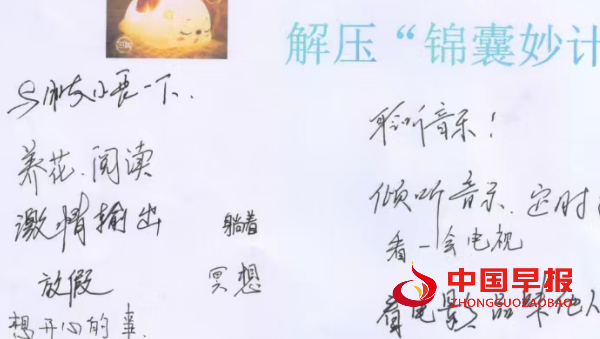 解压“锦囊妙计
聆听音乐！
养花、阅读
倾听音乐、定时
激情输出
躺着
看一会电视
放假
冥想
中国早报
ZHONGGUOZAOBAO
看电影 品味他人
想开心的事.